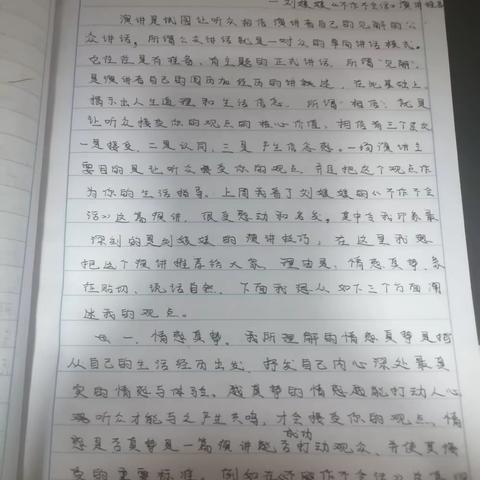 一刘媛媛《不作不会活》演讲推荐
演讲是试图让听众相信演讲者自己的见解的公
众讲话,所谓公众讲话就是一对众的单向讲话模式。
它往往是有准备,有主题的正式讲话,所谓"见解",
是演讲者自己的周历加经历的讲述,在此基础上
揭示出人生道理和生活信念,所谓"相信",就是
让听众接受你的观点的核心价值,相信有三个层次
一是接受,二是认同,三是产生信念感。一场演讲主
要目的是让听众接受你的观点,并且把这个观点作
为你的生活指导。上周我看了刘媛媛的《不作不会
活》这篇演讲,很受感动和启发。其中令我印象最
深刻的是刘媛媛的演讲技巧,在这里我想
把这个演讲推荐给大家,理由是,情感真挚,亲
在贴切,说话自然,下面我想从如下三个方面阐
述我的观点。
一、情感真挚。我所理解的情感真挚是指
从自己的生活经历出发,抒发自己内心深处最真
实的情感与体验。越真挚的情感越能打动人心
听众才能与之产生共鸣,才会接受你的观点,情
感是否真挚是一篇演讲能否成功打动观众,并使其接
受的重要标准,例如在《不作不会活》